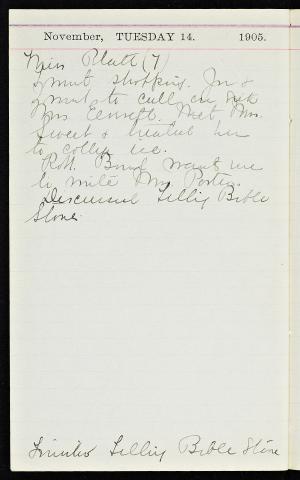 November, TUESDAY 14. 1905.
Miss Platt (7)
I went shopping. Jn &
I went to call on
Mrs. Emmett. Met Mrs.
Sweet & treated her
to coffee etc.
Robt. Bond wants me
to write Mr. Porter.
Discussed telling Bible
Stories
telling Bible Stories